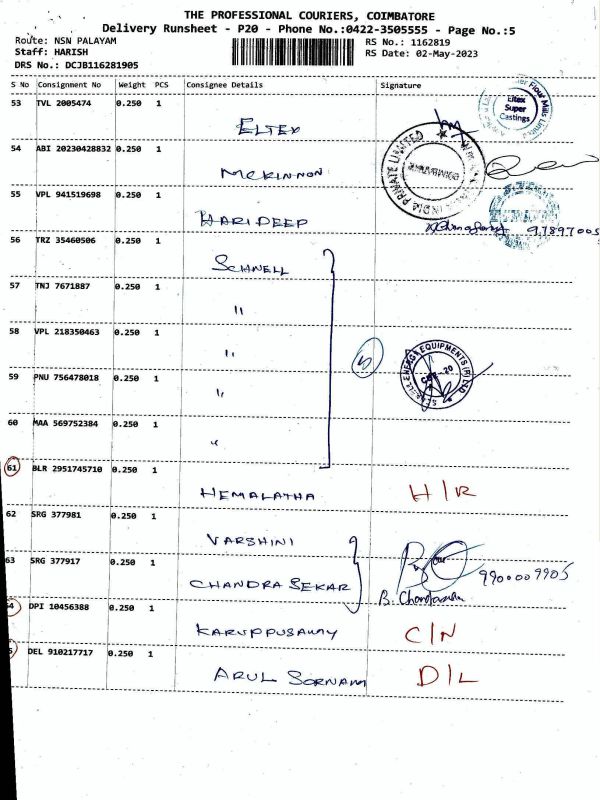 THE PROFESSIONAL COURIERS, COIMBATORE
Delivery Runsheet - P20 - Phone No.:0422-3505555 - Page No.:5
Route: NSN PALAYAM
RS No.: 1162819
Staff: HARISH
RS Date: 02-May-2023
DRS No.: DCJB116281905
S No Consignment No Weight PCS Consignee Details Signature
53 TVL 2005474 0.250 1
Flour Mills Limited
Eltex
Super
Castings
ELTEX
54 ABI 20230428832 0.250 1
INDIA PRIVATE LIMITED
MCKINNON
55 VPL 941519698 0.250 1
HARIDEEP
97897005
56 TRZ 35460506 0.250 1
SCHNELL
57 TNJ 7671887 0.250 1
"
58 VPL 218350463 0.250 1
"
5
ENERGY EQUIPMENTS (P) LTD
59 PNU 756478018 0.250 1
"
60 MAA 569752384 0.250 1
"
61 BLR 2951745710 0.250 1
HEMALATHA H/R
62 SRG 377981 0.250 1
VARSHINI
63 SRG 377917 0.250 1
9900009905
CHANDRA SEKAR
64 DPI 10456388 0.250 1
KARUPPUSAMY C/N
DEL 910217717 0.250 1
ARUL SORNAM D/L